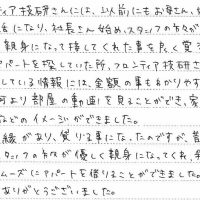 ティア技研さんには、以前にもお母さん、
話になり、社長さん始め、スタッフの方々が
、親身になって接してくれた事を良く覚え
アパートを探していた所、フロンティア技研さ
している情報には、金額の事もわかりやす
何より部屋の動画を見ることができ、家
などのイメージができました。
縁があり、貸りる事になったのですが、普
スタッフの方々が優しく親身になってくれ、
ムーズにアパートを借りることができました。
ありがとうございました。